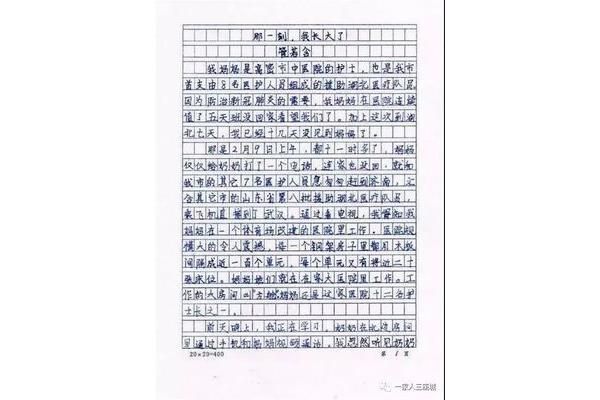 那一刻，我长大了
管若含
我妈妈是高密市中医院的护士，也是我市
首支由8名医护人员组成的援助湖北医疗队员。
因为防治新冠肺炎的需要，我妈妈在医院连续
值了五天班没回家看望我们了。加上这次到湖
北七天，我已经十几天没见到妈妈了。
那是2月9日上午，都十一时多了，妈妈
仅仅给奶奶打了一个电话，连家也没回，就和
我市的其它7名医护人员急匆匆赶到济南，汇
合其它市的山东省第八批援助湖北医疗队员，
乘飞机直接到了武汉。通过看电视，我得知我
妈妈在一个体育场改建的医院里工作。医院规
模大的令人震撼，每一个钢架房子里都用木板
间隔成近一百个单元，每个单元又有将近二十
张床位。妈妈她们就在在家大医院里工作。工
作的大房间叫"方舱"妈妈还是这家医院十二名护
士长之一。
前天晚上，我正在学习。奶奶在北边房间
里通过手机和妈妈视频通话，我忽然听见奶奶
20×20=400
第 1 页
一家人三座城